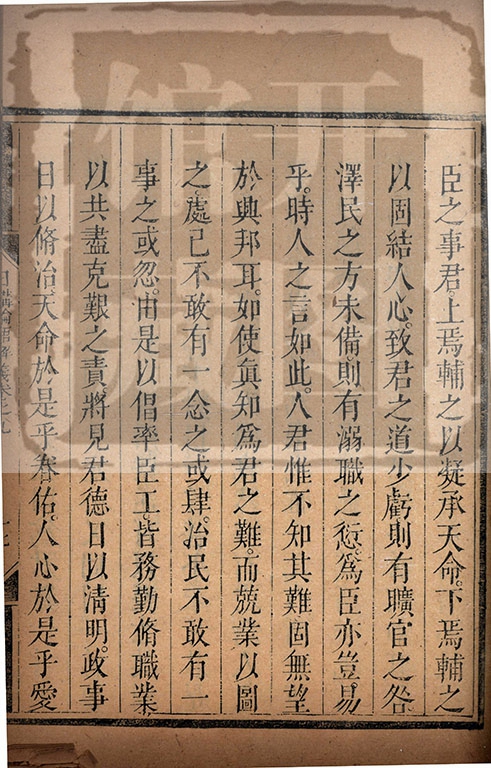 臣之事君。上焉輔之以凝承天命。下焉輔之
以固結人心。致君之道少虧則有曠官之咎
澤民之方未備。則有溺職之愆。為臣亦豈易
乎。時人之言如此。人君惟不知其難固無望
於興邦耳。如使眞知為君之難。而兢業以圖
之。處己不敢有一念之或肆。治民不敢有一
事之或忽。由是以倡率臣工。皆務勤脩職業
以共盡克艱之責將見君德日以清明。政事
日以脩治。天命於是乎眷佑。人心於是乎愛
日講論語解義卷之九